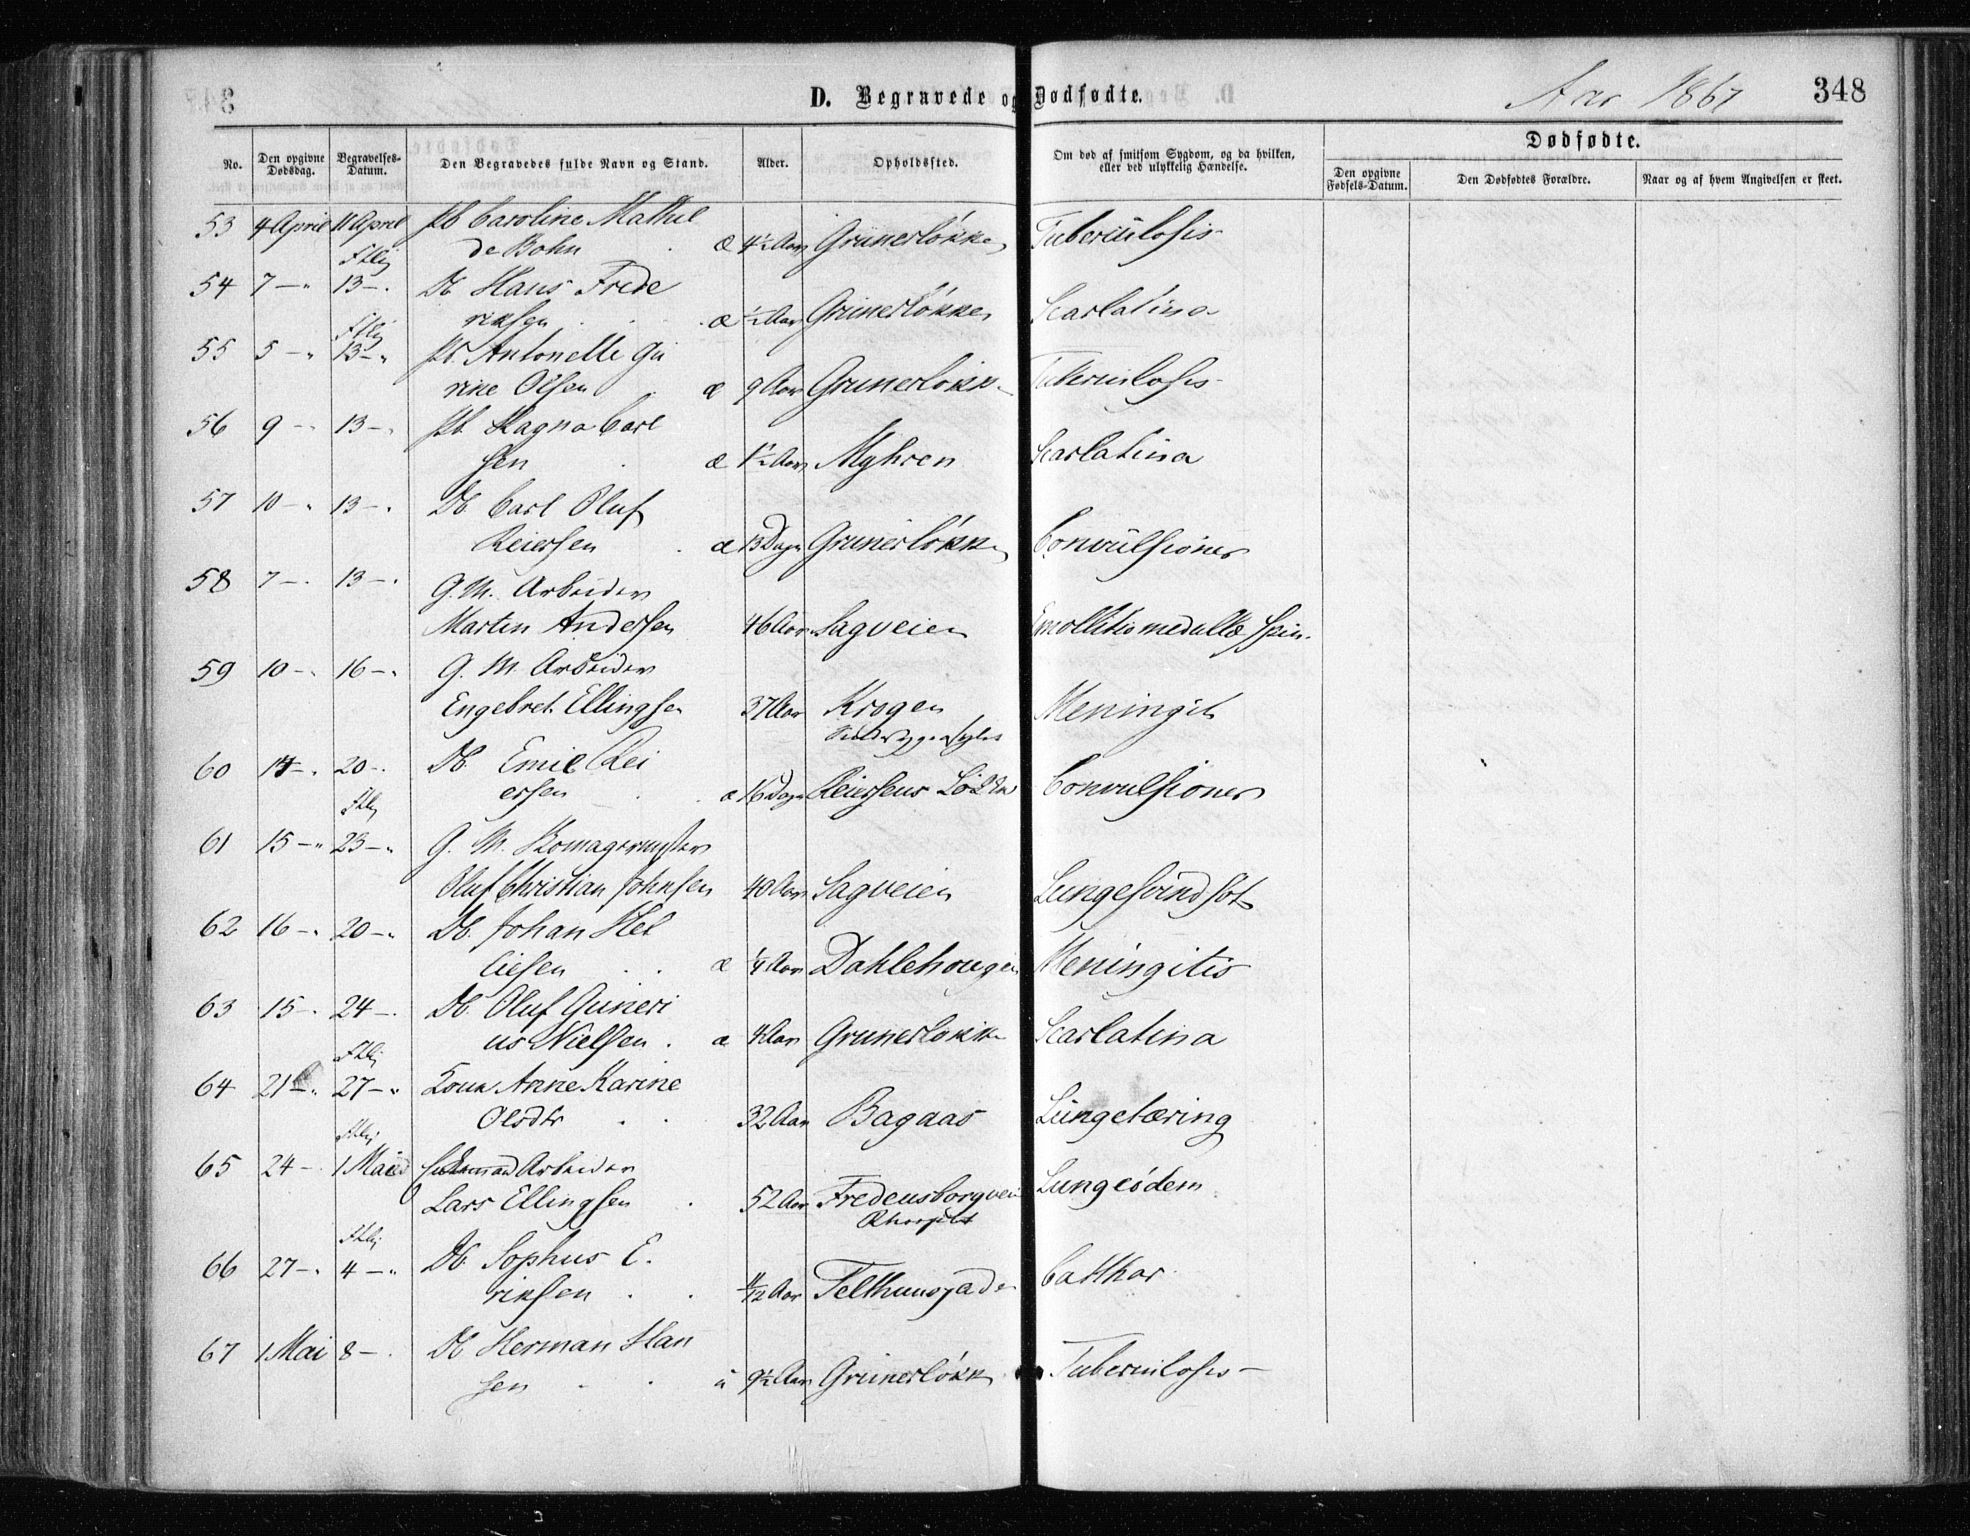 D. Begravede og Dødfødte. Aar 1867 348
Dødfødte.
No. Den opgivne Dødsdag. Begravelses-Datum. Den Begravedes fulde Navn og Stand. Alder. Opholdssted. Om død af smitsom Sygdom, og da hvilken, eller ved ulykkelig Hændelse. Den opgivne Fødsels-Datum. Den Dødfødtes Forældre. Naar og af hvem Angivelsen er skeet.
53 4 April 11 April Pb Caroline Mathil
de Bohn æ 4½ Aar Grünerløkken Tuberculosis
54 7 — " 13 — . Db Hans Frede
riksen æ ½ Aar Grünerløkken Scarlatina
55 5 — " 13 — " Pb. Antonette Gu
rine Olsen æ 9 Aar Grünerløkk Tuberculosis
56 9 — " 13 — " Pb. Hagna Carl
sen æ 1½ Aar Myhren Scarlatina
57 10 — " 13 — " Db Carl Oluf
Reiersen æ 13 Dage Grünerløkken Convulsioner
58 7 — . 13 — . G. M. Arbeider
Martin Andersen 46 Aar Sagveien Emollitio medullæ spin.
59 10 — " 16 — " G. M. Arbeider
Engebret Ellingsen 37 Aar Krogen Meningit
60 14 — . 20 — . Db. Emil Rei
ersen æ 16 Dage Reiersens Løkke Convulsioner
61 15 — " 23 — " G. M.
Oluf Christian Johnsen 40 Aar Sagveien Lungesvindsot
62 16 — " 20 — " Db. Johan Hel
liesen æ ¼ Aar Dahlehougen Meningitis
63 15 — . 24 — . Db. Oluf Guneri
us Nielsen . æ 4 Aar Grunerløkke Scarlatina
64 21 — " 27 — " Kone Anne Karine
Olsdtr 32 Aar Bagaas Lungetæring
65 24 — 1 Mai Arbeider
Lars Ellingsen 52 Aar Fredensborgvei Lungeødem
66 27 — . 4 — " Db. Sophus E.
riksen 11/12 Aar Telthusgade Catthar
67 1 Mai 8 — . Db Herman Han
sen 9½ Aar Grünerløkk Tuberculosis